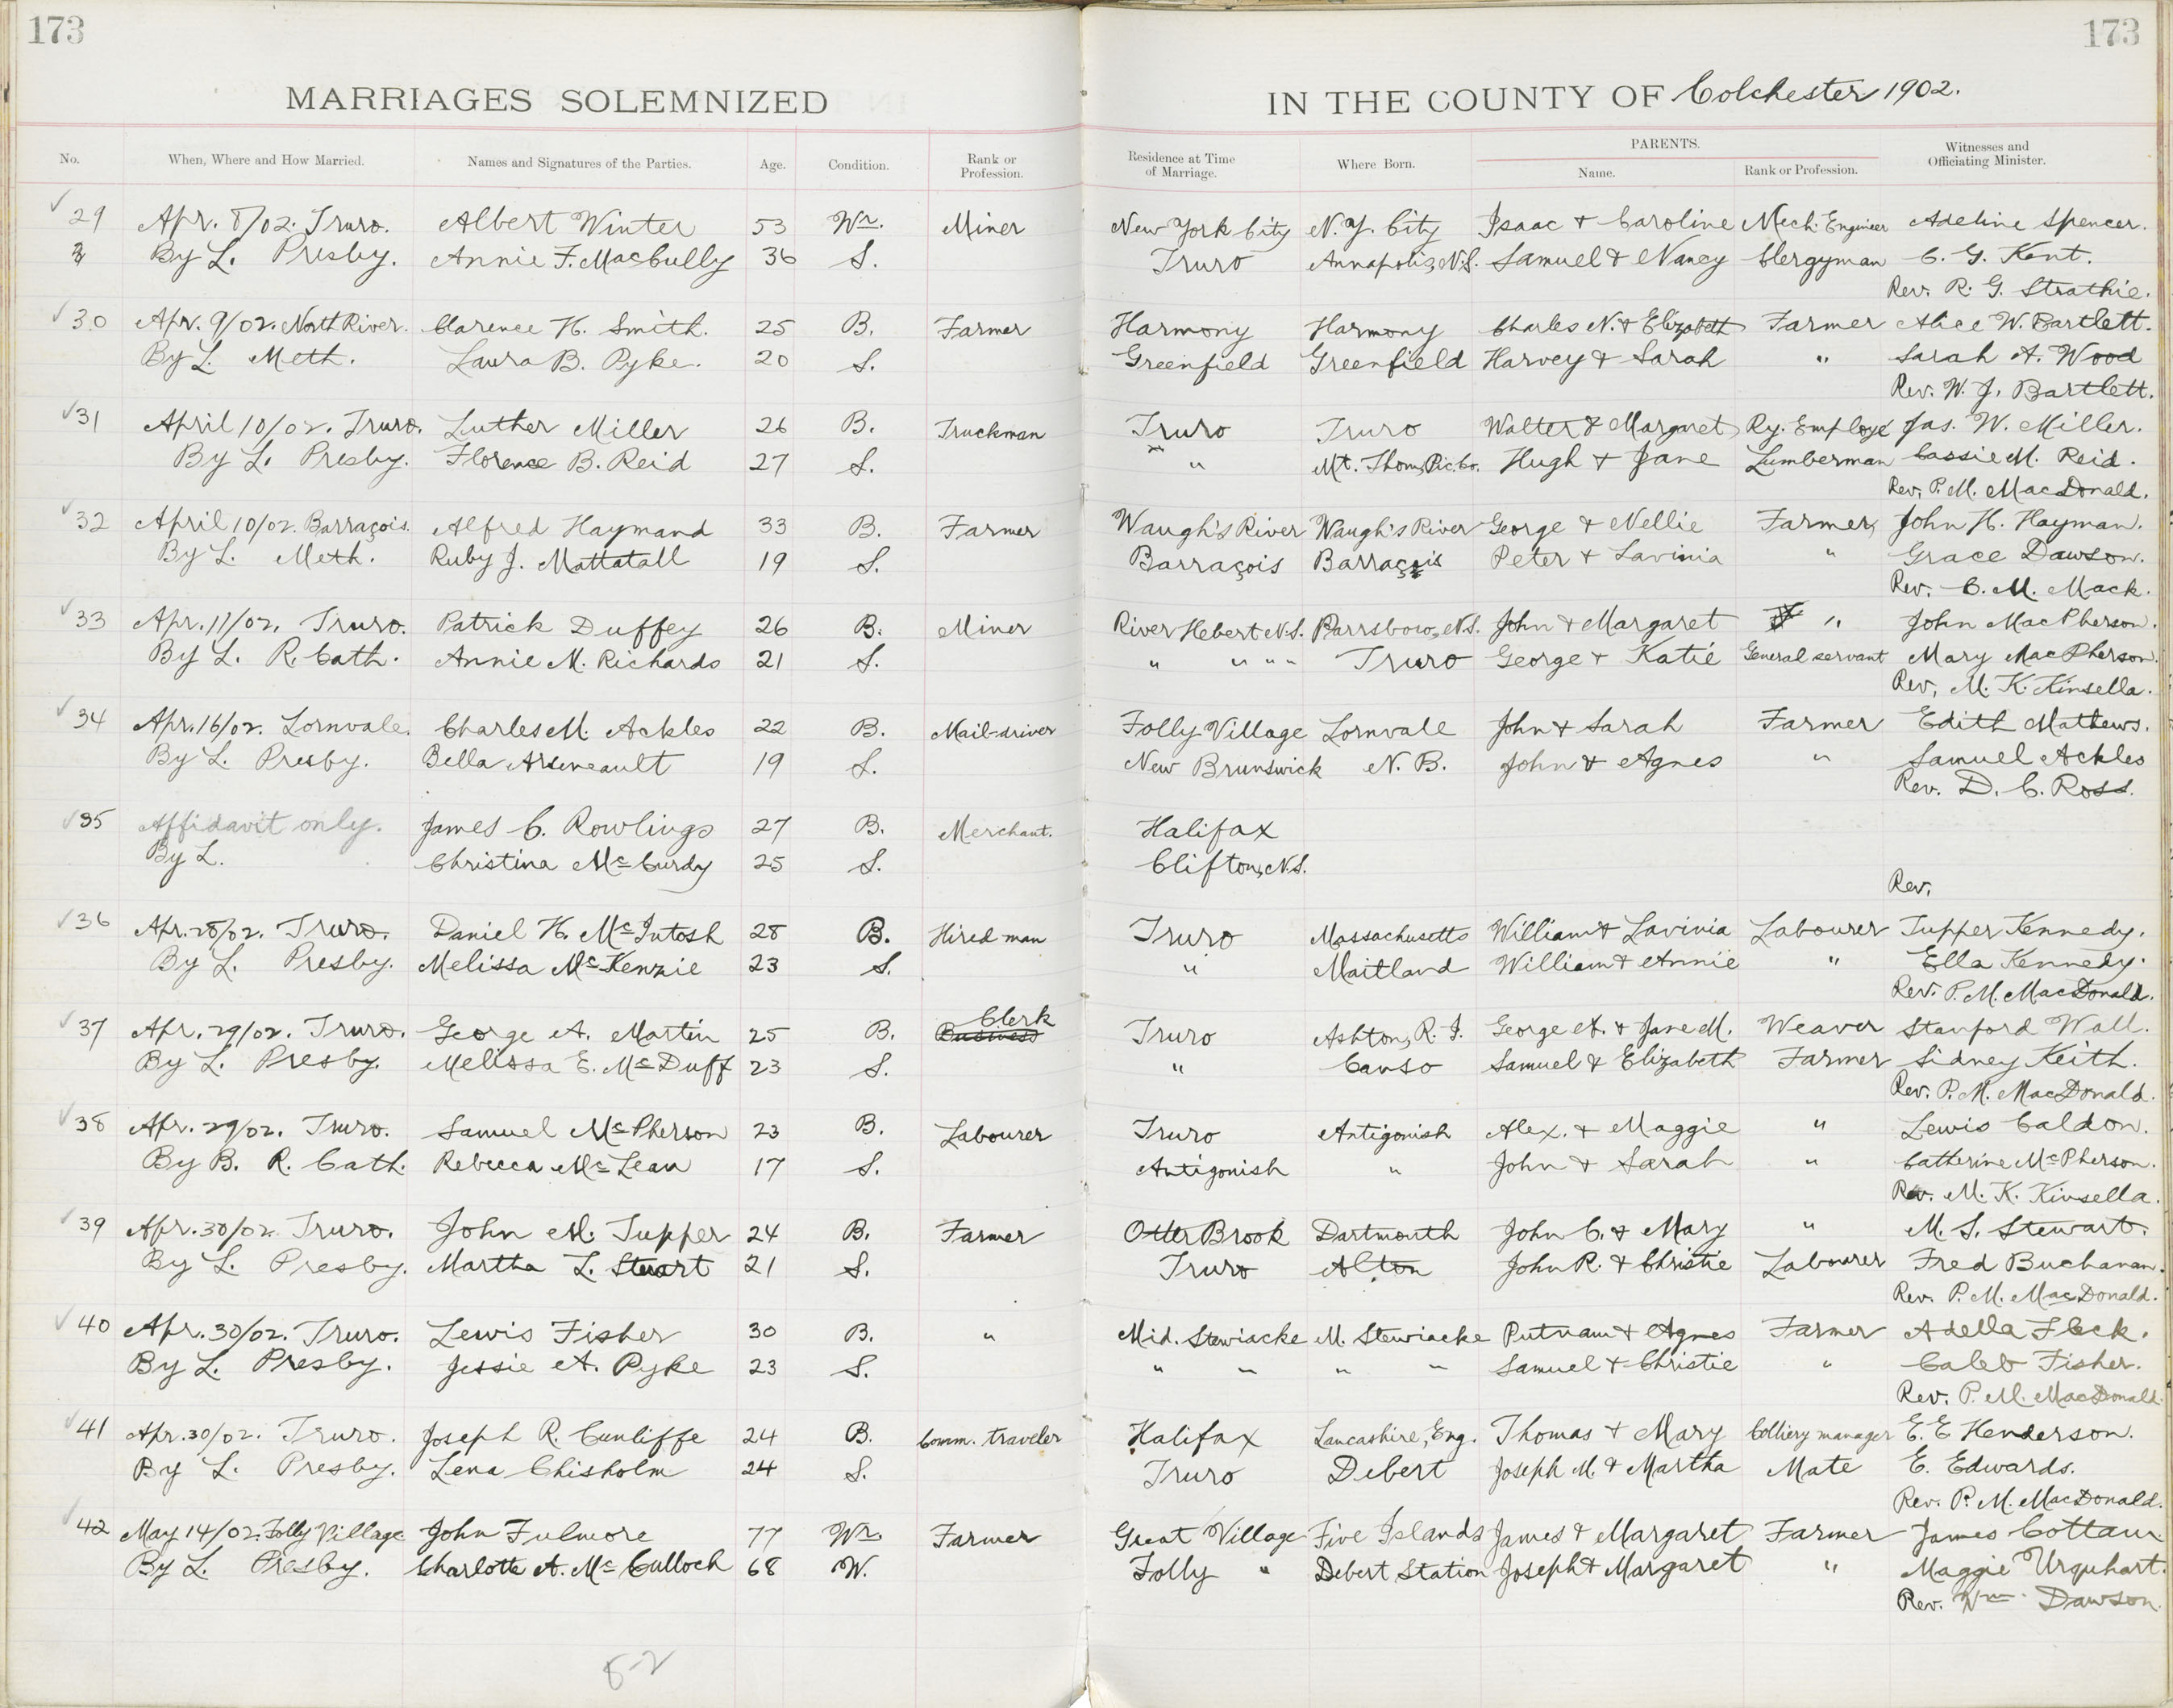 173
173
MARRIAGES SOLEMNIZED IN THE COUNTY OF Colchester 1902.
No. When, Where and How Married. Names and Signatures of the Parties. Age. Condition. Rank or Profession. Residence at Time of Marriage. Where Born. PARENTS. Name. Rank or Profession. Witnesses and Officiating Minister.
29 Apr. 8/02. Truro. Albert Winter 53 Wr. Miner New York City N.Y. City Isaac + Caroline Mech. Engineer Adeline Spencer.
By L. Presby. Annie F. MacCully 36 S. Truro Annapolis, N.S. Samuel & Nancy Clergyman C. G. Kent.
Rev. R. G. Strathie.
30 Apr. 9/02. North River. Clarence H. Smith. 25 B. Farmer Harmony Harmony Charles N. + Elizabeth Farmer Alice W. Bartlett.
By L. Meth. Laura B. Pyke. 20 S. Greenfield Greenfield Harvey & Sarah " Sarah A. Wood
Rev. W. J. Bartlett.
31 April 10/02. Truro. Luther Miller 26 B. Truckman Truro Truro Walter & Margaret Ry. Employe Jas. W. Miller.
By L. Presby. Florence B. Reid 27 S. " Mt. Thom, Pic. Co. Hugh + Jane Lumberman Cassie M. Reid.
Rev. P. M. MacDonald.
32 April 10/02. Barraçois. Alfred Haymand 33 B. Farmer Waugh's River Waugh's River George & Nellie Farmer John H. Hayman.
By L. Meth. Ruby J. Mattatall 19 S. Barraçois Barraçois Peter + Lavinia " Grace Dawson.
Rev. C. M. Mack.
33 Apr. 11/02. Truro. Patrick Duffey 26 B. Miner River Hebert N.S. Parrsboro, N.S. John + Margaret " John MacPherson.
By L. R. Cath. Annie M. Richards 21 S. " " " " Truro George + Katie General servant Mary MacPherson.
Rev. M. K. Kinsella.
34 Apr. 16/02. Lornvale. Charles M. Ackles 22 B. Mail-driver Folly Village Lornvale John + Sarah Farmer Edith Mathews.
By L. Presby. Bella Arseneault 19 S. New Brunswick N. B. John & Agnes " Samuel Ackles
Rev. D. C. Ross.
35 Affidavit only. James C. Rowlings 27 B. Merchant. Halifax
By L. Christina McCurdy 25 S. Clifton, N.S.
Rev.
36 Apr. 28/02. Truro. Daniel H. McIntosh 28 B. Hired man Truro Massachusetts William & Lavinia Labourer Tupper Kennedy.
By L. Presby. Melissa McKenzie 23 S. " Maitland William & Annie " Ella Kennedy.
Rev. P. M. MacDonald.
37 Apr. 29/02. Truro. George A. Martin 25 B. Business Clerk Truro Ashton, R. I. George A. + Jane M. Weaver Stanford Wall.
By L. Presby. Melissa E. McDuff 23 S. " Canso Samuel & Elizabeth Farmer Sidney Keith.
Rev. P. M. MacDonald.
38 Apr. 29/02. Truro. Samuel McPherson 23 B. Labourer Truro Antigonish Alex. + Maggie " Lewis Caldon.
By B. R. Cath. Rebecca McLean 17 S. Antigonish " John + Sarah " Catherine McPherson.
Rev. M. K. Kinsella.
39 Apr. 30/02 Truro. John M. Tupper 24 B. Farmer Otter Brook Dartmouth John C. & Mary " M. S. Stewart.
By L. Presby. Martha L. Stuart 21 S. Truro Alton John R. & Christie Labourer Fred Buchanan.
Rev. P. M. MacDonald.
40 Apr. 30/02. Truro. Lewis Fisher 30 B. " Mid. Stewiacke M. Stewiacke Putnam & Agnes Farmer Adella Fleck.
By L. Presby. Jessie A. Pyke 23 S. " " " " Samuel + Christie " Caleb Fisher.
Rev. P. M. MacDonald.
41 Apr. 30/02. Truro. Joseph R. Cunliffe 24 B. Comm. traveler Halifax Lancashire, Eng. Thomas + Mary Colliery manager E. E Henderson.
By L. Presby. Lena Chisholm 24 S. Truro Debert Joseph M. & Martha Mate E. Edwards.
Rev. P. M. MacDonald.
42 May 14/02. Folly Village John Fulmore 77 Wr. Farmer Great Village Five Islands James & Margaret Farmer James Cottam
By L. Presby. Charlotte A. McCulloch 68 W. Folly " Debert Station Joseph & Margaret " Maggie Urquhart.
Rev. Wm. Dawson.